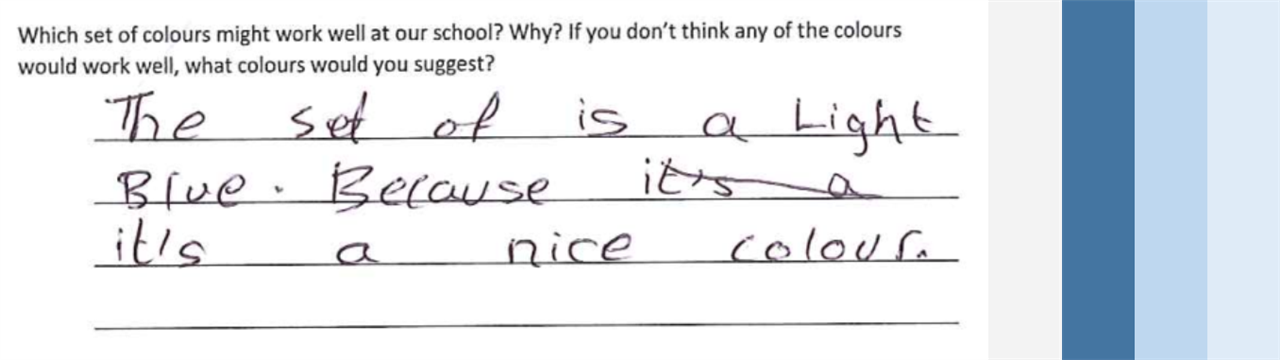 Which set of colours might work well at our school? Why? If you don't think any of the colours
would work well, what colours would you suggest?
The set of is a Light
Blue. Because it's a
it's a nice colour.